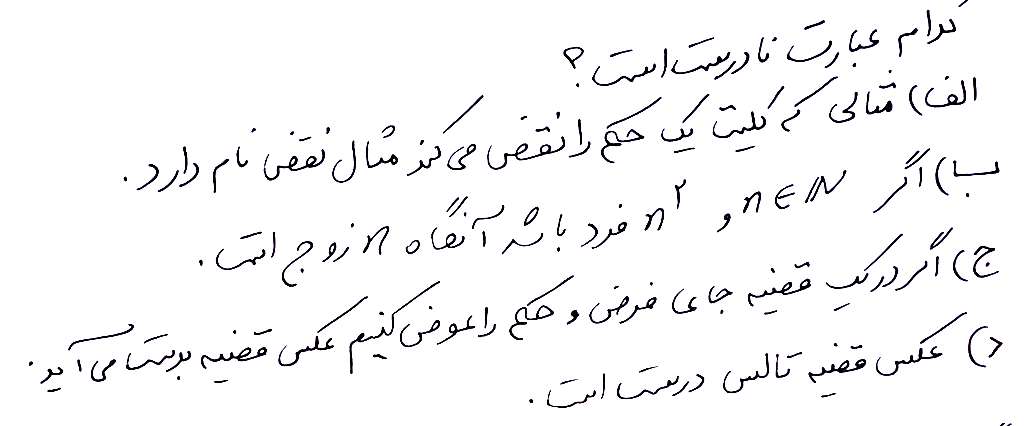 کدام عبارت نادرست است؟
الف) مثالی که کلیت یک حکم را نقض می‌کند مثال نقض نام دارد.
ب) اگر n∈ℕ و n² فرد باشد آنگاه n زوج است.
ج) اگر در یک قضیه جای فرض و حکم را عوض کنیم عکس قضیه بدست می‌آید.
د) عکس قضیه تالس درست است.